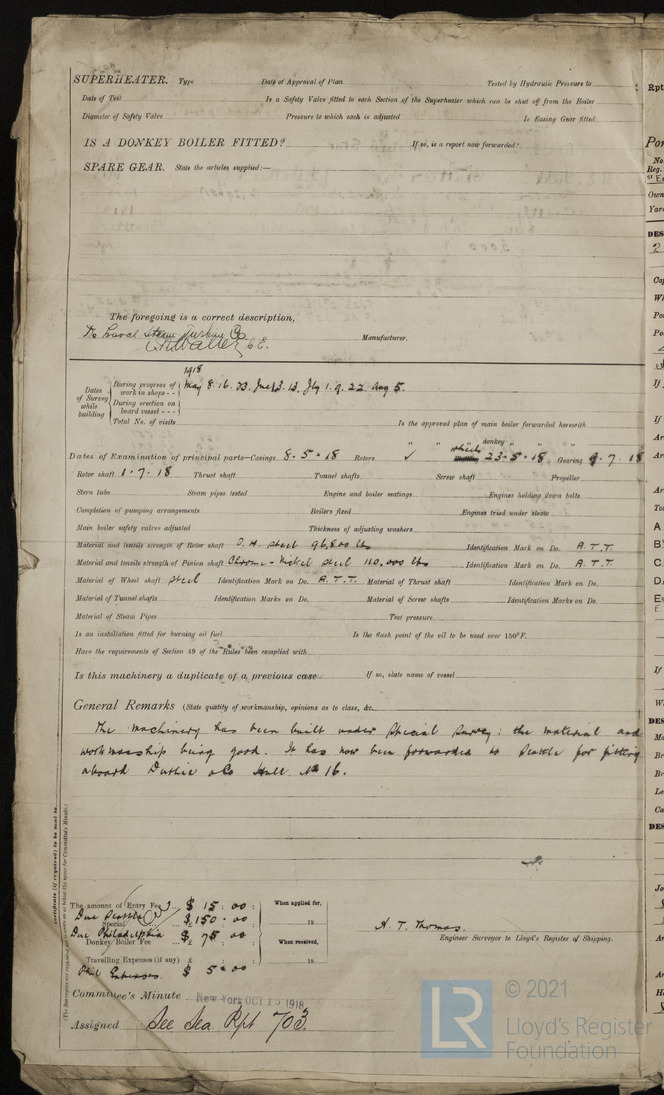 SUPERHEATER. Type Date of Approval of Plan Tested by Hydraulic Pressure to
Date of Test Is a Safety Valve fitted to each Section of the Superheater which can be shut off from the Boiler
Diameter of Safety Valve Pressure to which each is adjusted Is Easing Gear fitted
IS A DONKEY BOILER FITTED? If so, is a report now forwarded?
SPARE GEAR. State the articles supplied:—
The foregoing is a correct description,
De Laval Steam Turbine Co
C.E. Manufacturer.
1918
Dates of Survey while building
During progress of work in shops - - May 8. 16. 23. June 13. Jly 1. 9. 22. Aug 5.
During erection on board vessel - - -
Total No. of visits Is the approved plan of main boiler forwarded herewith
" " donkey " " "
Dates of Examination of principal parts—Casings 8.5.18 Rotors ✓ wheels 23.5.18 Gearing 9.7.18
Rotor shaft 1.7.18 Thrust shaft Tunnel shafts Screw shaft Propeller
Stern tube Steam pipes tested Engine and boiler seatings Engines holding down bolts
Completion of pumping arrangements Boilers fixed Engines tried under steam
Main boiler safety valves adjusted Thickness of adjusting washers
Material and tensile strength of Rotor shaft O.H. Steel 96,800 lbs Identification Mark on Do. A.T.T.
Material and tensile strength of Pinion shaft Chrome-Nickel Steel 110,000 lbs Identification Mark on Do. A.T.T.
Material of Wheel shaft Steel Identification Mark on Do. A.T.T. Material of Thrust shaft Identification Mark on Do.
Material of Tunnel shafts Identification Marks on Do. Material of Screw shafts Identification Marks on Do.
Material of Steam Pipes Test pressure
Is an installation fitted for burning oil fuel Is the flash point of the oil to be used over 150°F.
Have the requirements of Section 49 of the Rules been complied with
Is this machinery a duplicate of a previous case If so, state name of vessel
General Remarks (State quality of workmanship, opinions as to class, &c.
The machinery has been built under Special Survey: the material and
workmanship being good. It has now been forwarded to Seattle for fitting
aboard Duthie & Co Hull No 16.
The amount of Entry Fee $ 15 : 00 : When applied for,
Due Seattle
Special $ 150 . 00 19
Due Philadelphia $ 75 00
Donkey Boiler Fee £ When received,
Travelling Expenses (if any) £ 19
Phil Expenses $ 5.00
A. T. Thomas.
Engineer Surveyor to Lloyd's Register of Shipping.
Committee's Minute New York OCT 15 1918
Assigned See Sea Rpt 703
© 2021
LR
Lloyd's Register
Foundation
Rpt
No
Reg.
Own
Yar
DES